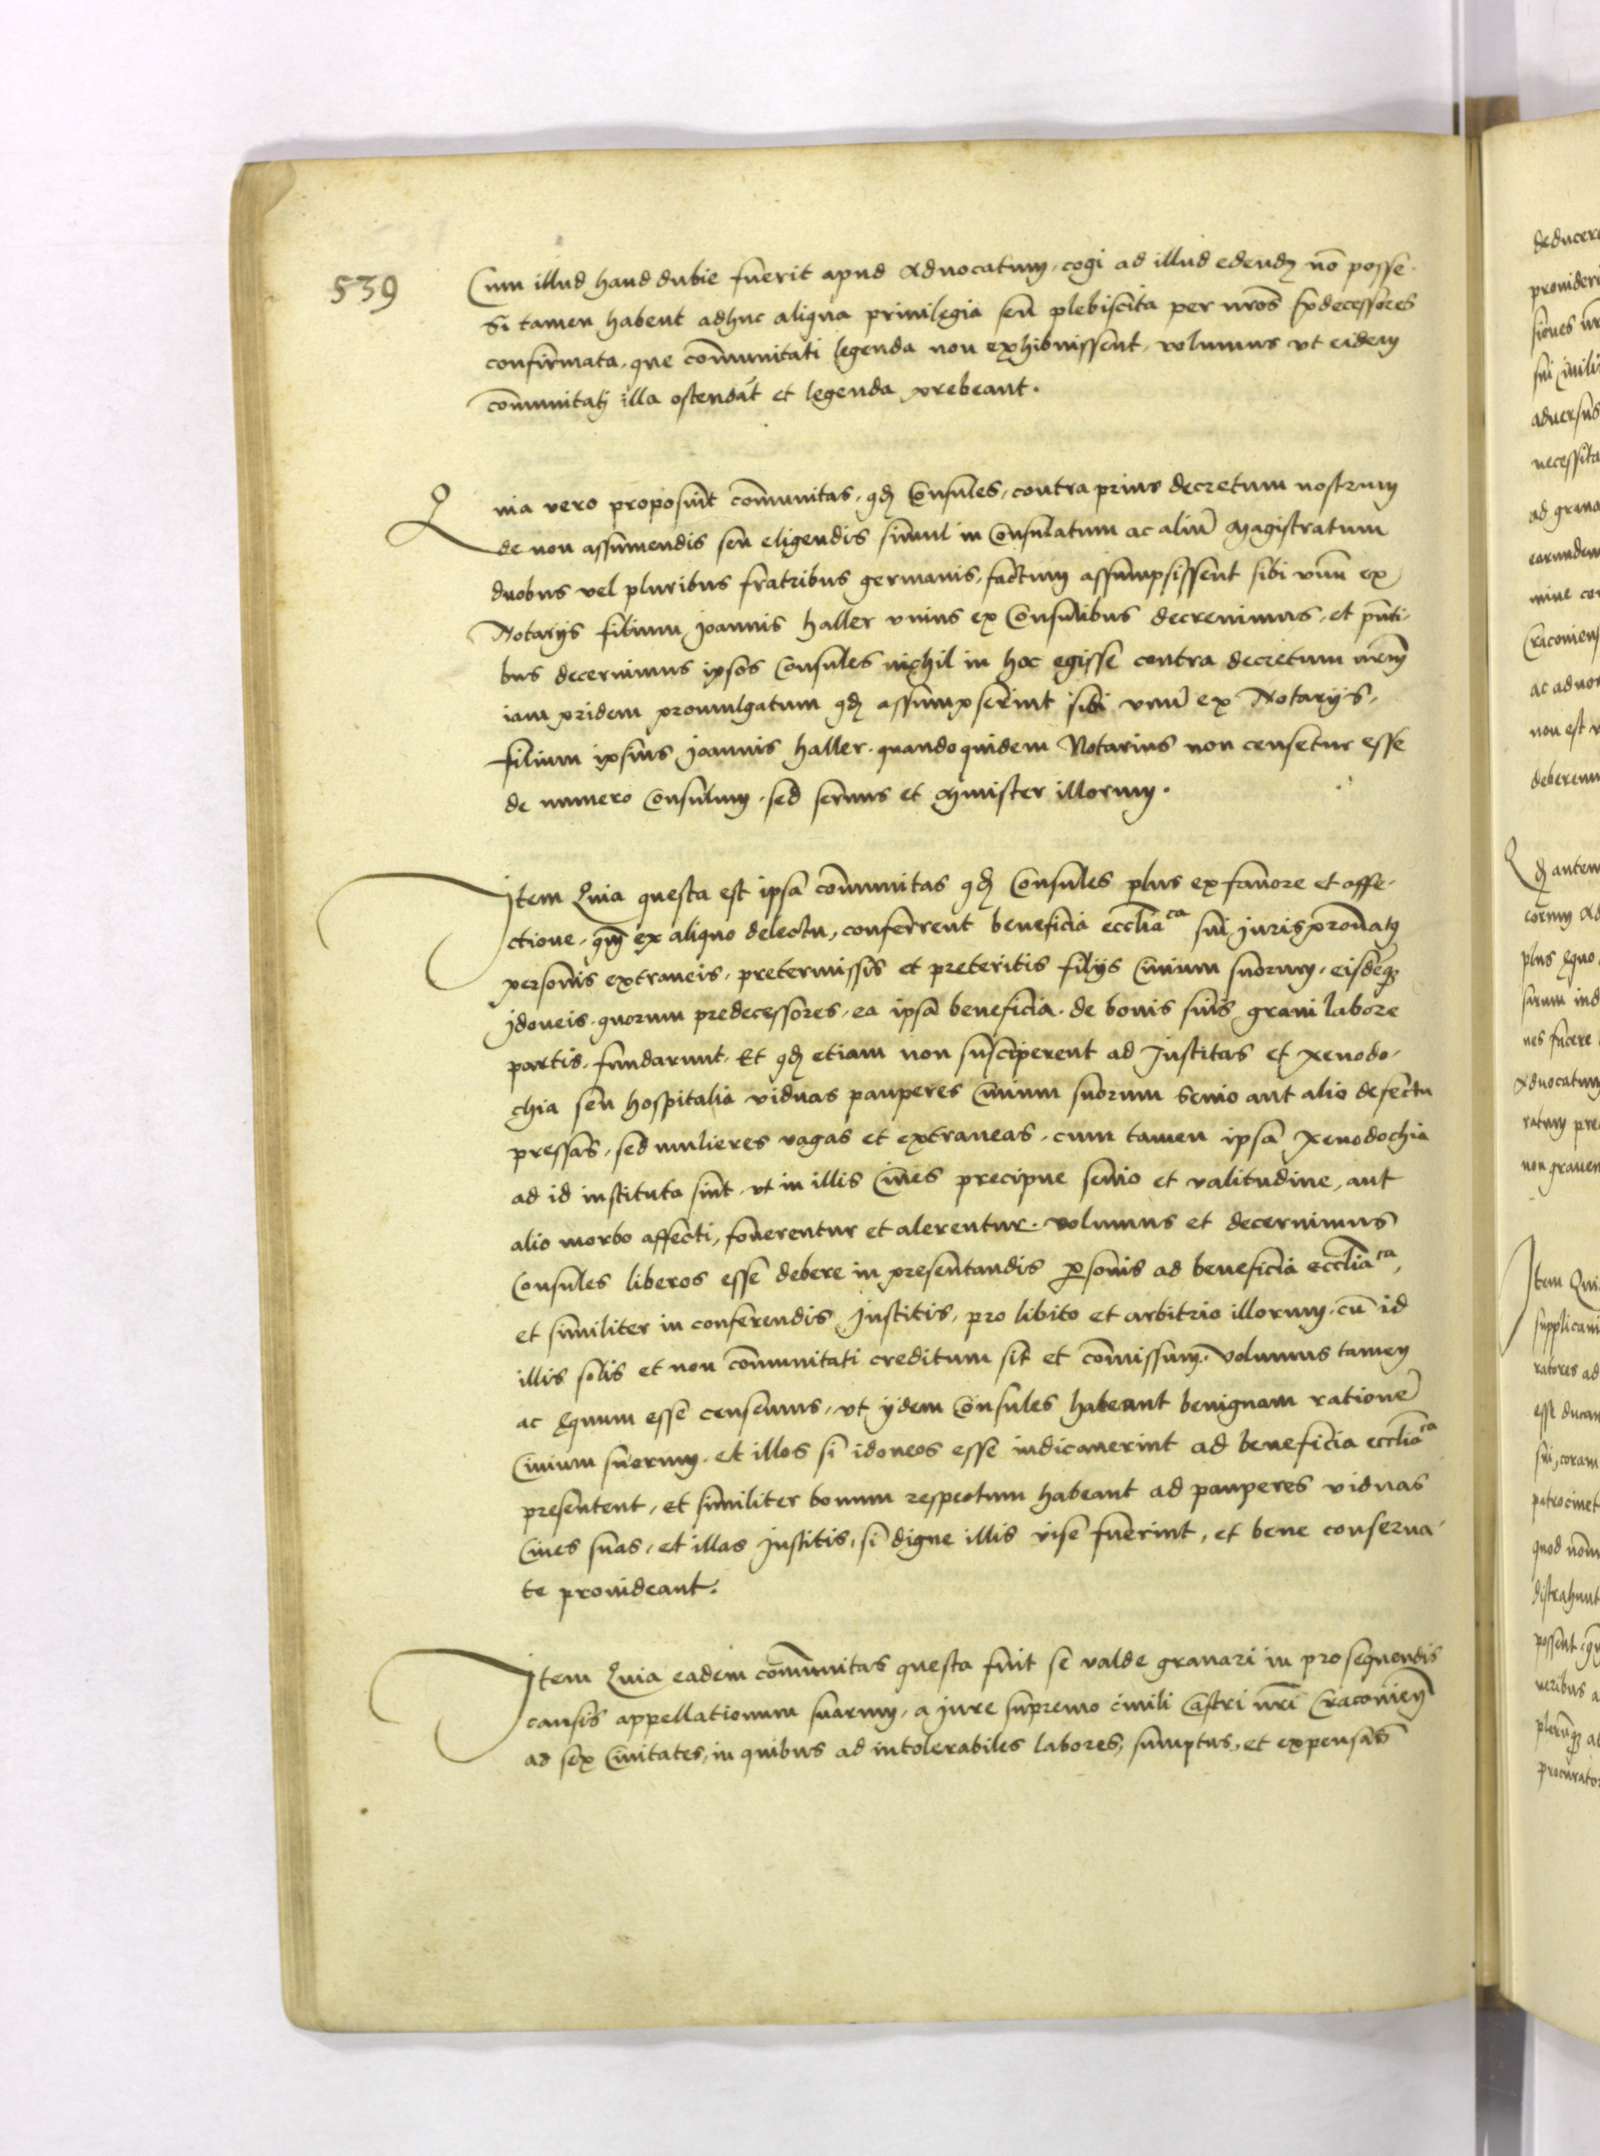 539
Cum illud haud dubie fuerit apud Advocatum, cogi ad illud edendū nō posse.
Si tamen habent adhuc aliqua privilegia seu plebiscita per nros predecessores
confirmata, que cōmunitati legenda non exhibuissent, volumus ut eidem
cōmunitati illa ostendāt et legenda prebeant.
Quia vero proposuit cōmunitas, qd Consules, contra prius decretum nostrum
de non assumendis seu eligendis simul in Consulatum ac aliū Magistratum
duobus vel pluribus fratribus germanis, factum assumpsissent sibi unū ex
Notariis filium Joannis Haller unius ex Consulibus decrevimus, et pnti-
bus decernimus ipsos Consules nichil in hoc egisse contra decretum nrm
iam pridem promulgatum qd assumpserint sibi unū ex Notariis,
filium ipsius Joannis Haller, quandoquidem Notarius non censetur esse
de numero Consulum, sed servus et Minister illorum.
Item Quia questa est ipsa cōmunitas qd Consules plus ex favore et affe-
ctione, qm ex aliquo delectu, conferrent beneficia ecclīaca sui jurispronatus
personis extraneis, pretermissis et preteritis filiis Civium suorum, eisdemq
Idoneis, quorum predecessores, ea ipsa beneficia, de bonis suis gravi labore
partis, fundarunt. Et qd etiam non susciperent ad Institas et xenodo-
chia seu hospitalia viduas pauperes Civium suorum senio aut alio defectu
pressas, sed mulieres vagas et extraneas, cum tamen ipsa xenodochia
ad id instituta sint, ut in illis Cives precipue senio et valitudine, aut
alio morbo affecti, foverentur et alerentur. volumus et decernimus
Consules liberos esse debere in presentandis personis ad beneficia ecclīaca,
et similiter in conferendis Institis, pro libito et arbitrio illorum, cū id
illis solis et non cōmunitati creditum sit et cōmissum. Volumus tamen
ac equum esse censemus, ut iidem Consules habeant benignam rationē
Civium suorum, et illos si idoneos esse indicaverint ad beneficia ecclīaca
presentent, et similiter bonum respectum habeant ad pauperes viduas
Cives suas, et illas Institis, si digne illis vise fuerint, et bene conserva-
te provideant.
Item Quia eadem cōmunitas questa fuit se valde gravari in prosequendis
causis appellationum suarum, a jure supremo civili Castri nri Cracovien
ad sex Civitates, in quibus ad intolerabiles labores, sumptus, et expensas